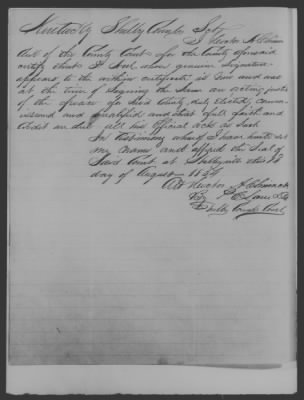 Kentucky Shelby County Sct
I Hector A Chinn
Clerk of the County Court for the County aforesaid
certify that whose genuine signature
appears to the within certificate is now and was
at the time of signing the same an acting justice
of the peace for said County duly elected, commissioned
and qualified and that full faith and
credit are due all his official acts as such
In testimony whereof I have hereunto set
my name and affixed the Seal of
said Court at Shelbyville this
day of August
Att Hector A Chinn Clk
By
Shelby County Court